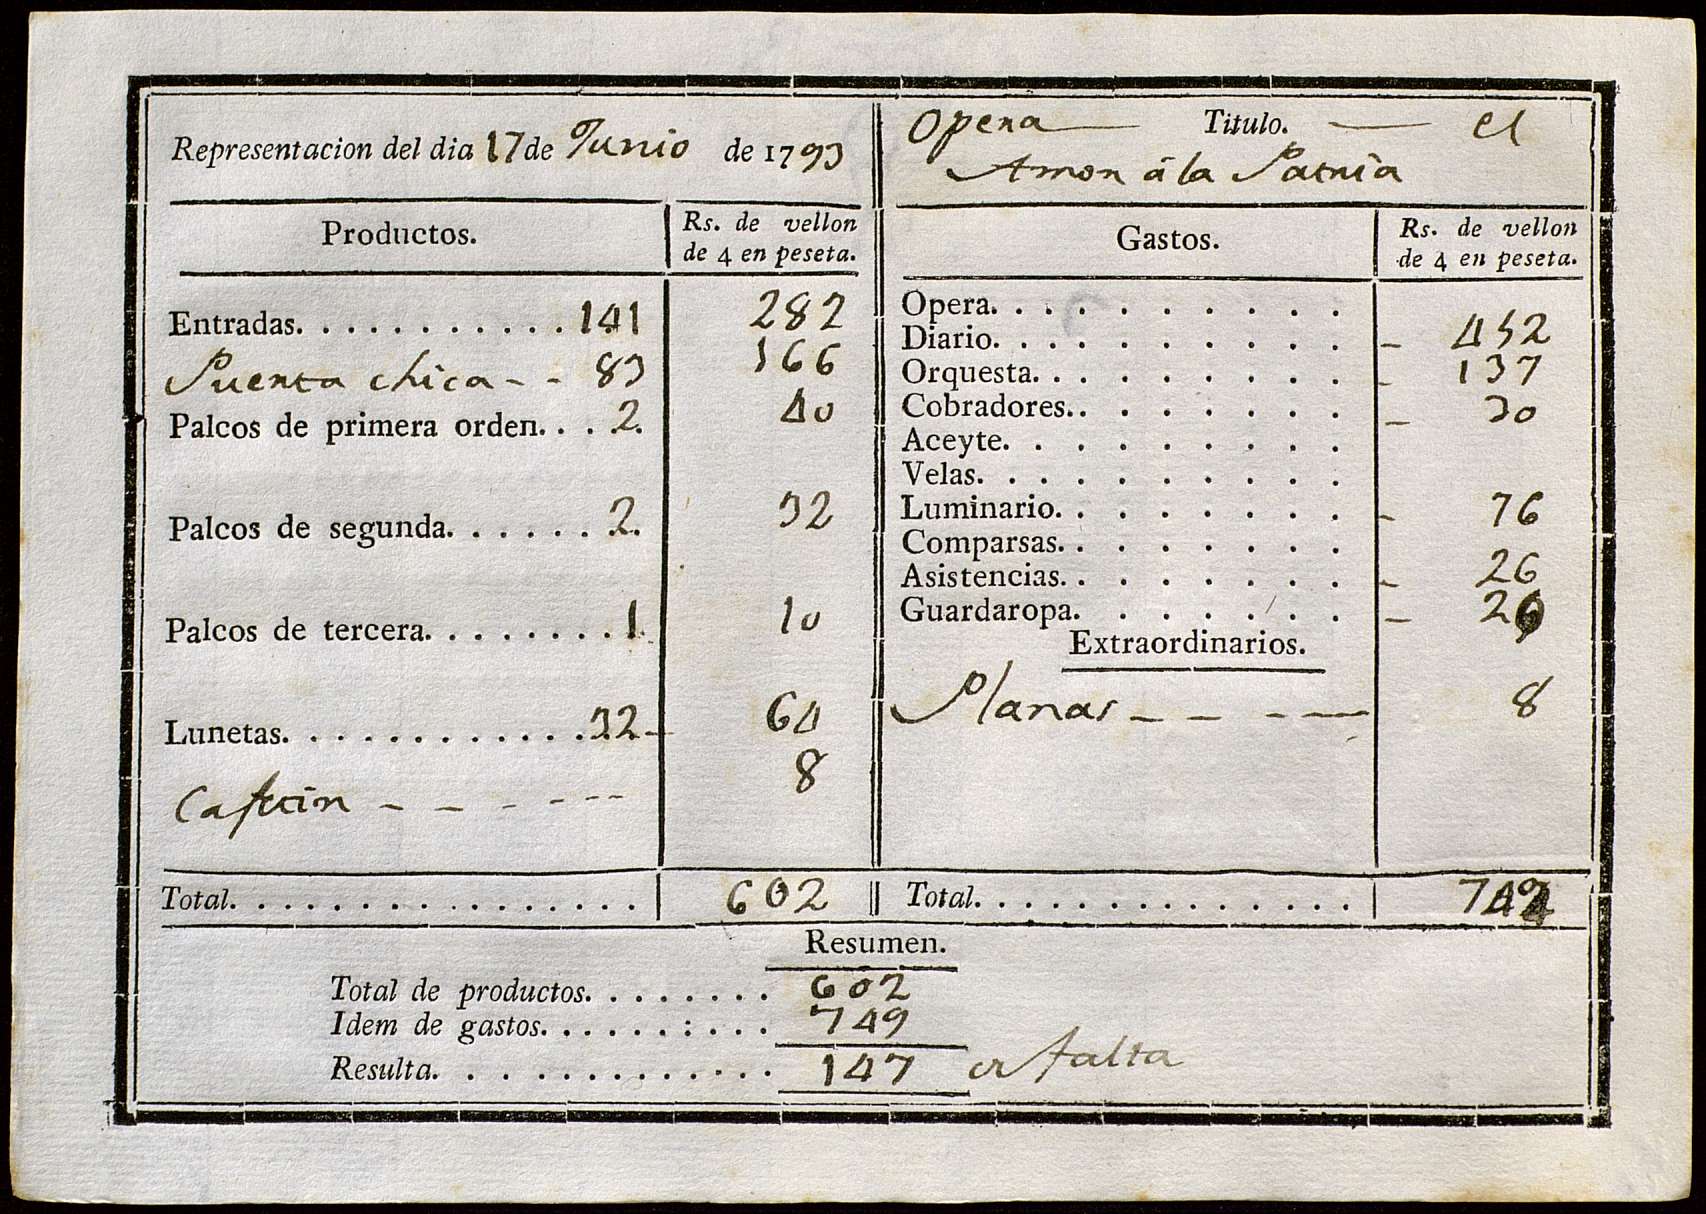 Representacion del dia 17 de Junio de 1793
Opera Titulo. el
Amor á la Patria
Productos. Rs. de vellon de 4 en peseta.
Entradas. . . . . . . . . . . 141 282
Puerta chica - - 83 166
Palcos de primera orden. . . . 2. 40
Palcos de segunda. . . . . . . 2. 32
Palcos de tercera. . . . . . . . 1. 10
Lunetas. . . . . . . . . . . . 32 - 64
Cafetin - - - - - - 8
Total. . . . . . . . . . . . . . . . 602
Gastos. Rs. de vellon de 4 en peseta.
Opera. . . . . . . . . .
Diario. . . . . . . . . . - 452
Orquesta. . . . . . . . . - 137
Cobradores. . . . . . . . - 30
Aceyte. . . . . . . . .
Velas. . . . . . . . . .
Luminario. . . . . . . . - 76
Comparsas. . . . . . . .
Asistencias. . . . . . . . - 26
Guardaropa. . . . . . . -
Extraordinarios.
Planas - - - - 8
Total. . . . . . . . . . . . . . . . 749
Resumen.
Total de productos. . . . . . . . 602
Idem de gastos. . . . . . : . . . 749
Resulta. . . . . . . . . . . . 147 falta